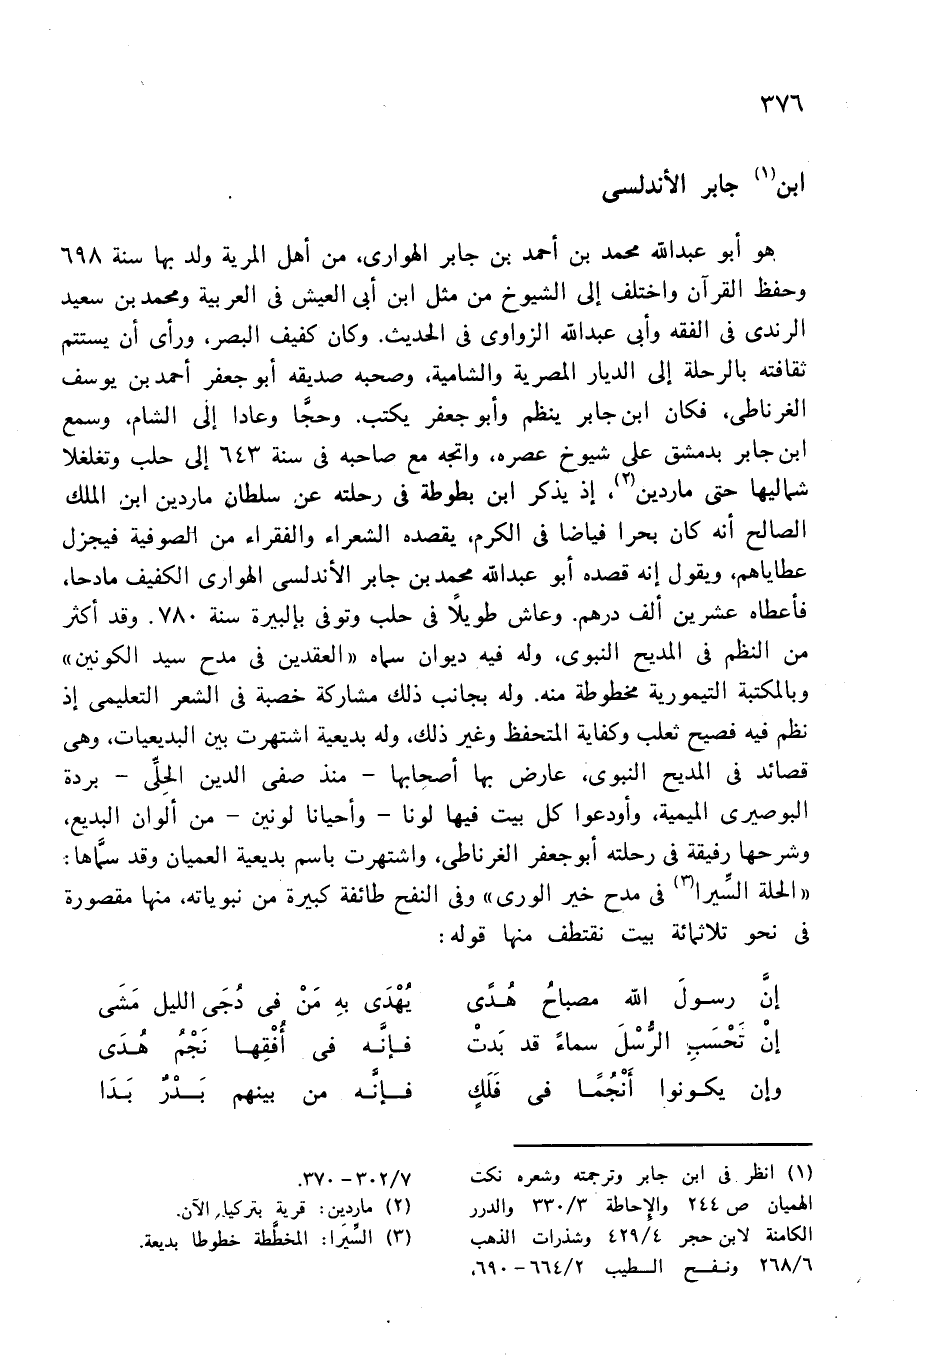 ٣٧٦
ابن(١) جابر الأندلسى
هو أبو عبدالله محمد بن أحمد بن جابر الهوارى، من أهل المرية ولد بها سنة ٦٩٨
وحفظ القرآن واختلف إلى الشيوخ من مثل ابن أبى العيش فى العربية ومحمد بن سعيد
الرندى فى الفقه وأبى عبدالله الزواوى فى الحديث. وكان كفيف البصر، ورأى أن يستتم
ثقافته بالرحلة إلى الديار المصرية والشامية، وصحبه صديقه أبو جعفر أحمد بن يوسف
الغرناطى، فكان ابن جابر ينظم وأبو جعفر يكتب. وحجَّا وعادا إلى الشام، وسمع
ابن جابر بدمشق على شيوخ عصره، واتجه مع صاحبه فى سنة ٦٤٣ إلى حلب وتغلغلا
شماليها حتى ماردين(٢)، إذ يذكر ابن بطوطة فى رحلته عن سلطان ماردين ابن الملك
الصالح أنه كان بحرا فياضا فى الكرم، يقصده الشعراء والفقراء من الصوفية فيجزل
عطاياهم، ويقول إنه قصده أبو عبدالله محمد بن جابر الأندلسى الهوارى الكفيف مادحا،
فأعطاه عشرين ألف درهم. وعاش طويلًا فى حلب وتوفى بإلبيرة سنة ٧٨٠. وقد أكثر
من النظم فى المديح النبوى، وله فيه ديوان سماه «العقدين فى مدح سيد الكونين»
وبالمكتبة التيمورية مخطوطة منه. وله بجانب ذلك مشاركة خصبة فى الشعر التعليمى إذ
نظم فيه فصيح ثعلب وكفاية المتحفظ وغير ذلك، وله بديعية اشتهرت بين البديعيات، وهى
قصائد فى المديح النبوى، عارض بها أصحابها – منذ صفى الدين الحِلِّى – بردة
البوصيرى الميمية، وأودعوا كل بيت فيها لونا – وأحيانا لونين – من ألوان البديع،
وشرحها رفيقة فى رحلته أبو جعفر الغرناطى، واشتهرت باسم بديعية العميان وقد سمَّاها:
«الحلة السِّيرا(٣) فى مدح خير الورى» وفى النفح طائفة كبيرة من نبوياته، منها مقصورة
فى نحو ثلاثمائة بيت نقتطف منها قوله:
إنَّ رسـولَ الله مصباحُ هُـدًى يُهْدَى بِهِ مَنْ فى دُجَى الليل مَشَى
إنْ تَحْسَبِ الرُّسْلَ سماءً قد بَدَتْ فـإنَّـه فى أُفْقِهـا نَجْمُ هُـدَى
وإن يكـونوا أَنْجُمًـا فى فَلَكٍ فــإنَّـه من بينهم بَـدْرٌ بَـدَا
(١) انظر فى ابن جابر وترجمته وشعره نكت
الهميان ص ٢٤٤ والإحاطة ٣٣٠/٣ والدرر
الكامنة لابن حجر ٤٢٩/٤ وشذرات الذهب
٢٦٨/٦ ونفـح الـطيب ٦٦٤/٢ – ٦٩٠،
٣٠٢/٧ – ٣٧٠.
(٢) ماردين: قرية بتركيا. الآن.
(٣) السِّيَرا: المخطَّطة خطوطا بديعة.